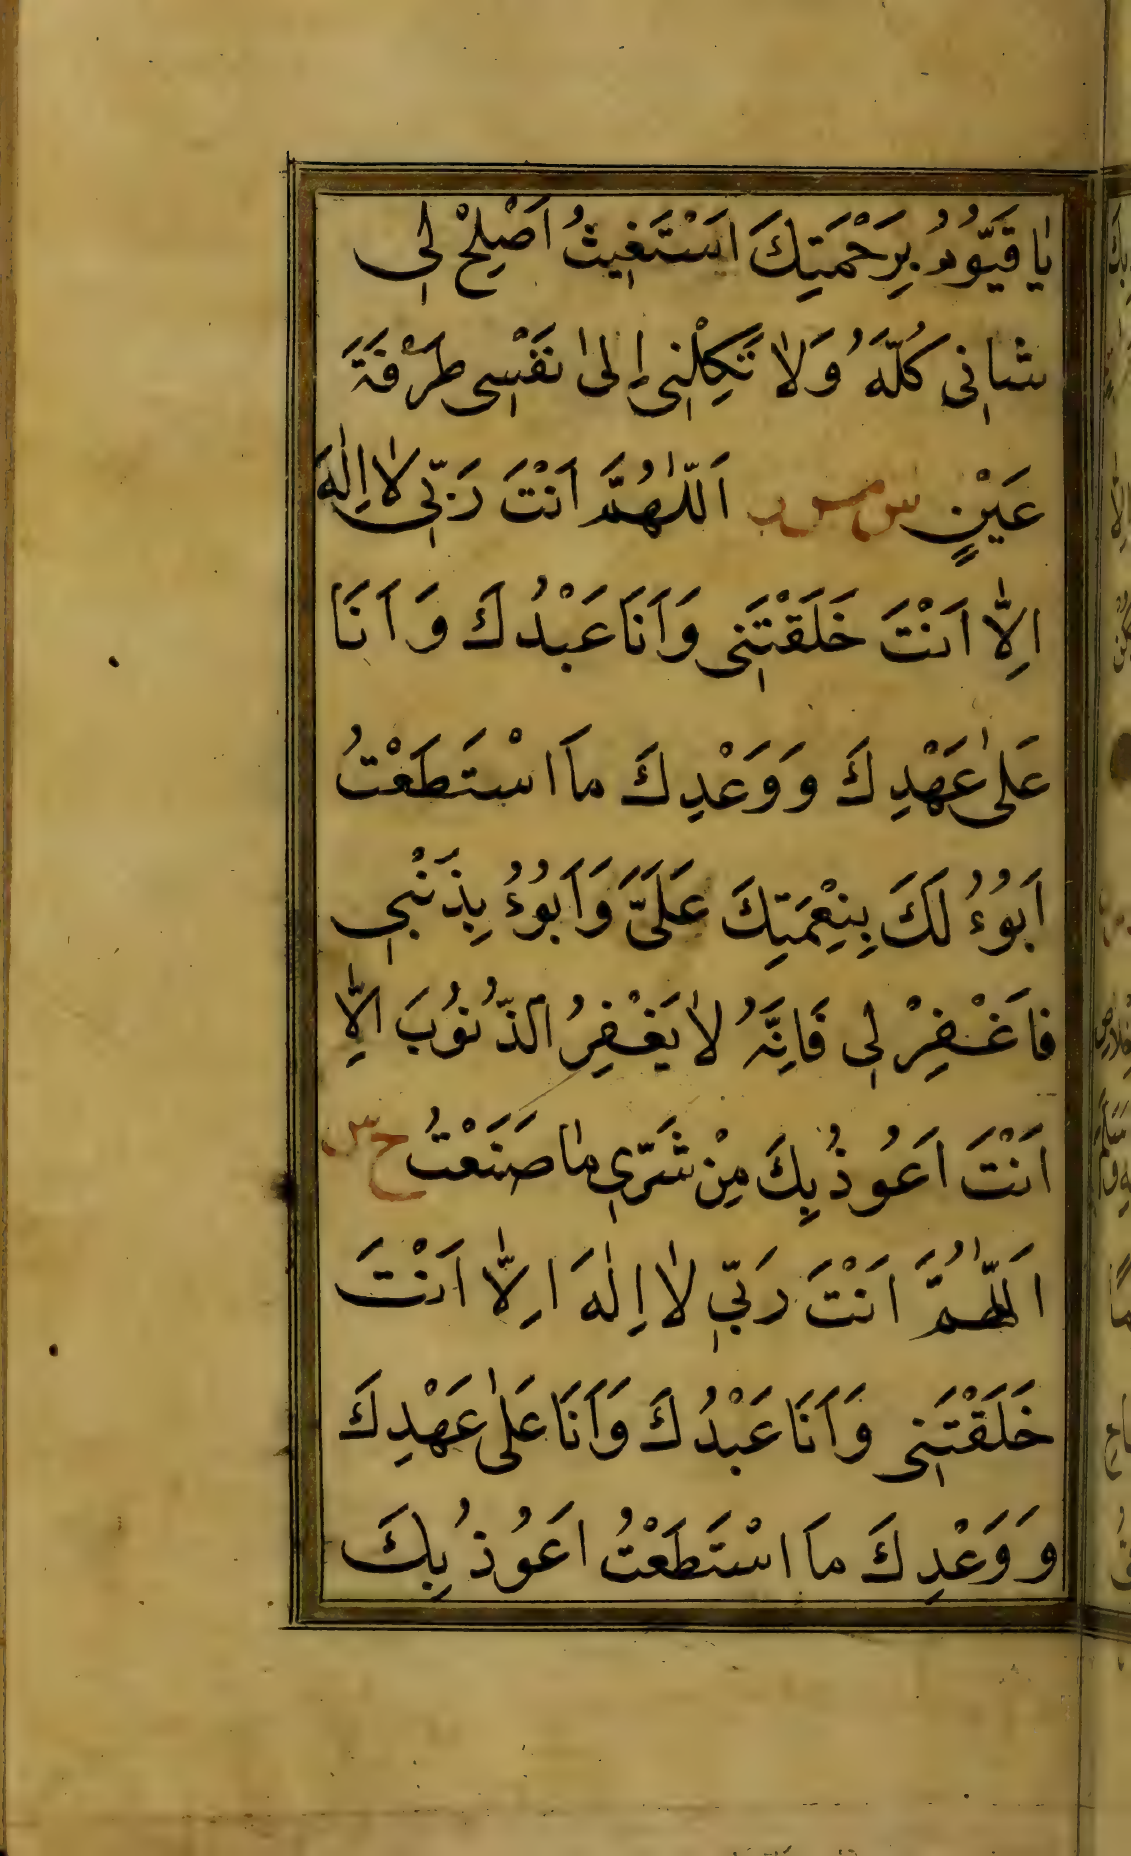 يٰا قَيُّوْمُ بِرَحْمَتِكَ اَسْتَغِيثُ اَصْلِحْ لِي
شَانِي كُلَّهُ وَلاٰ تَكِلْنِي اِلىٰ نَفْسِي طَرْفَةَ
عَيْنٍ س مس ر اَللّٰهُمَّ اَنْتَ رَبِّي لاٰ اِلٰهَ
اِلاّٰ اَنْتَ خَلَقْتَنِي وَاَنَا عَبْدُكَ وَاَنَا
عَلىٰ عَهْدِكَ وَوَعْدِكَ مَا اسْتَطَعْتُ
اَبُوْءُ لَكَ بِنِعْمَتِكَ عَلَيَّ وَاَبُوْءُ بِذَنْبِي
فَاغْفِرْ لِي فَاِنَّهُ لاٰ يَغْفِرُ الذُّنُوْبَ اِلاّٰ
اَنْتَ اَعُوْذُ بِكَ مِنْ شَرِّ مٰا صَنَعْتُ خ س
اَللّٰهُمَّ اَنْتَ رَبِّي لاٰ اِلٰهَ اِلاّٰ اَنْتَ
خَلَقْتَنِي وَاَنَا عَبْدُكَ وَاَنَا عَلىٰ عَهْدِكَ
وَوَعْدِكَ مَا اسْتَطَعْتُ اَعُوْذُ بِكَ